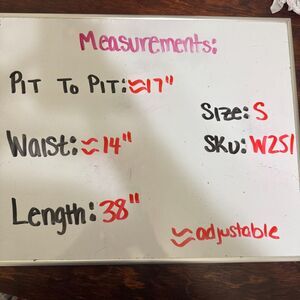 Measurements:
PIT TO PIT: ≈17"
Size: S
Waist: ≈14"
SKU: W251
Length: 38"
≈adjustable